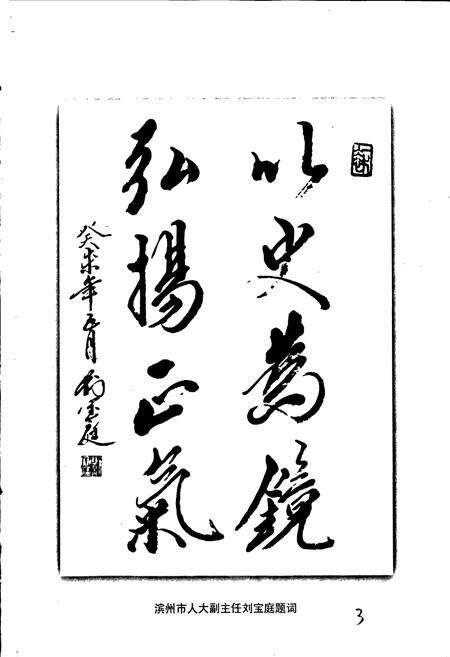 以史為鏡
弘揚正氣
癸未年正月 劉寶庭
滨州市人大副主任刘宝庭题词
3